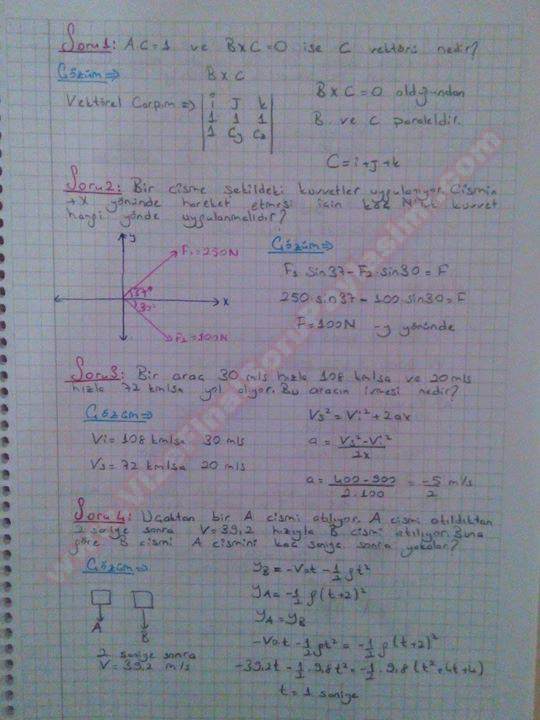 Soru 1: A.C=1 ve BxC=0 ise C vektörü nedir?
Çözüm ⇒ BxC
Vektörel Çarpım ⇒ | i J k |
| 1 1 1 |
| 1 Cy Cz |
BxC=0 olduğundan
B ve C paraleldir.
C=i+J+k
Soru 2: Bir cisme şekildeki kuvvetler uygulanıyor. Cismin
+X yönünde hareket etmesi için kaç N'luk kuvvet
hangi yönde uygulanmalıdır?
y
F1=250N
37°
30°
x
F2=100N
Çözüm ⇒
F1 sin37 - F2 sin30 = F
250 sin37 - 100 sin30 = F
F=100N -y yönünde
Soru 3: Bir araç 30 m/s hızla 108 km/sa ve 20 m/s
hızla 72 km/sa yol alıyor. Bu aracın ivmesi nedir?
Çözüm ⇒
Vi=108 km/sa 30 m/s
Vs=72 km/sa 20 m/s
Vs²=Vi²+2ax
a=Vs²-Vi²/2x
a=400-900/2.100=-5/2 m/s
Soru 4: Uçaktan bir A cismi atılıyor. A cismi atıldıktan
2 saniye sonra V=39,2 hızıyla B cismi atılıyor. Buna
göre B cismi A cismini kaç saniye sonra yakalar?
Çözüm ⇒
A B
2 saniye sonra
V=39,2 m/s
yB=-V0t-1/2 gt²
yA=-1/2 g(t+2)²
yA=yB
-V0t-1/2 gt²=-1/2 g(t+2)²
-39,2t-1/2 9,8t²=-1/2 9,8(t²+4t+4)
t=1 saniye